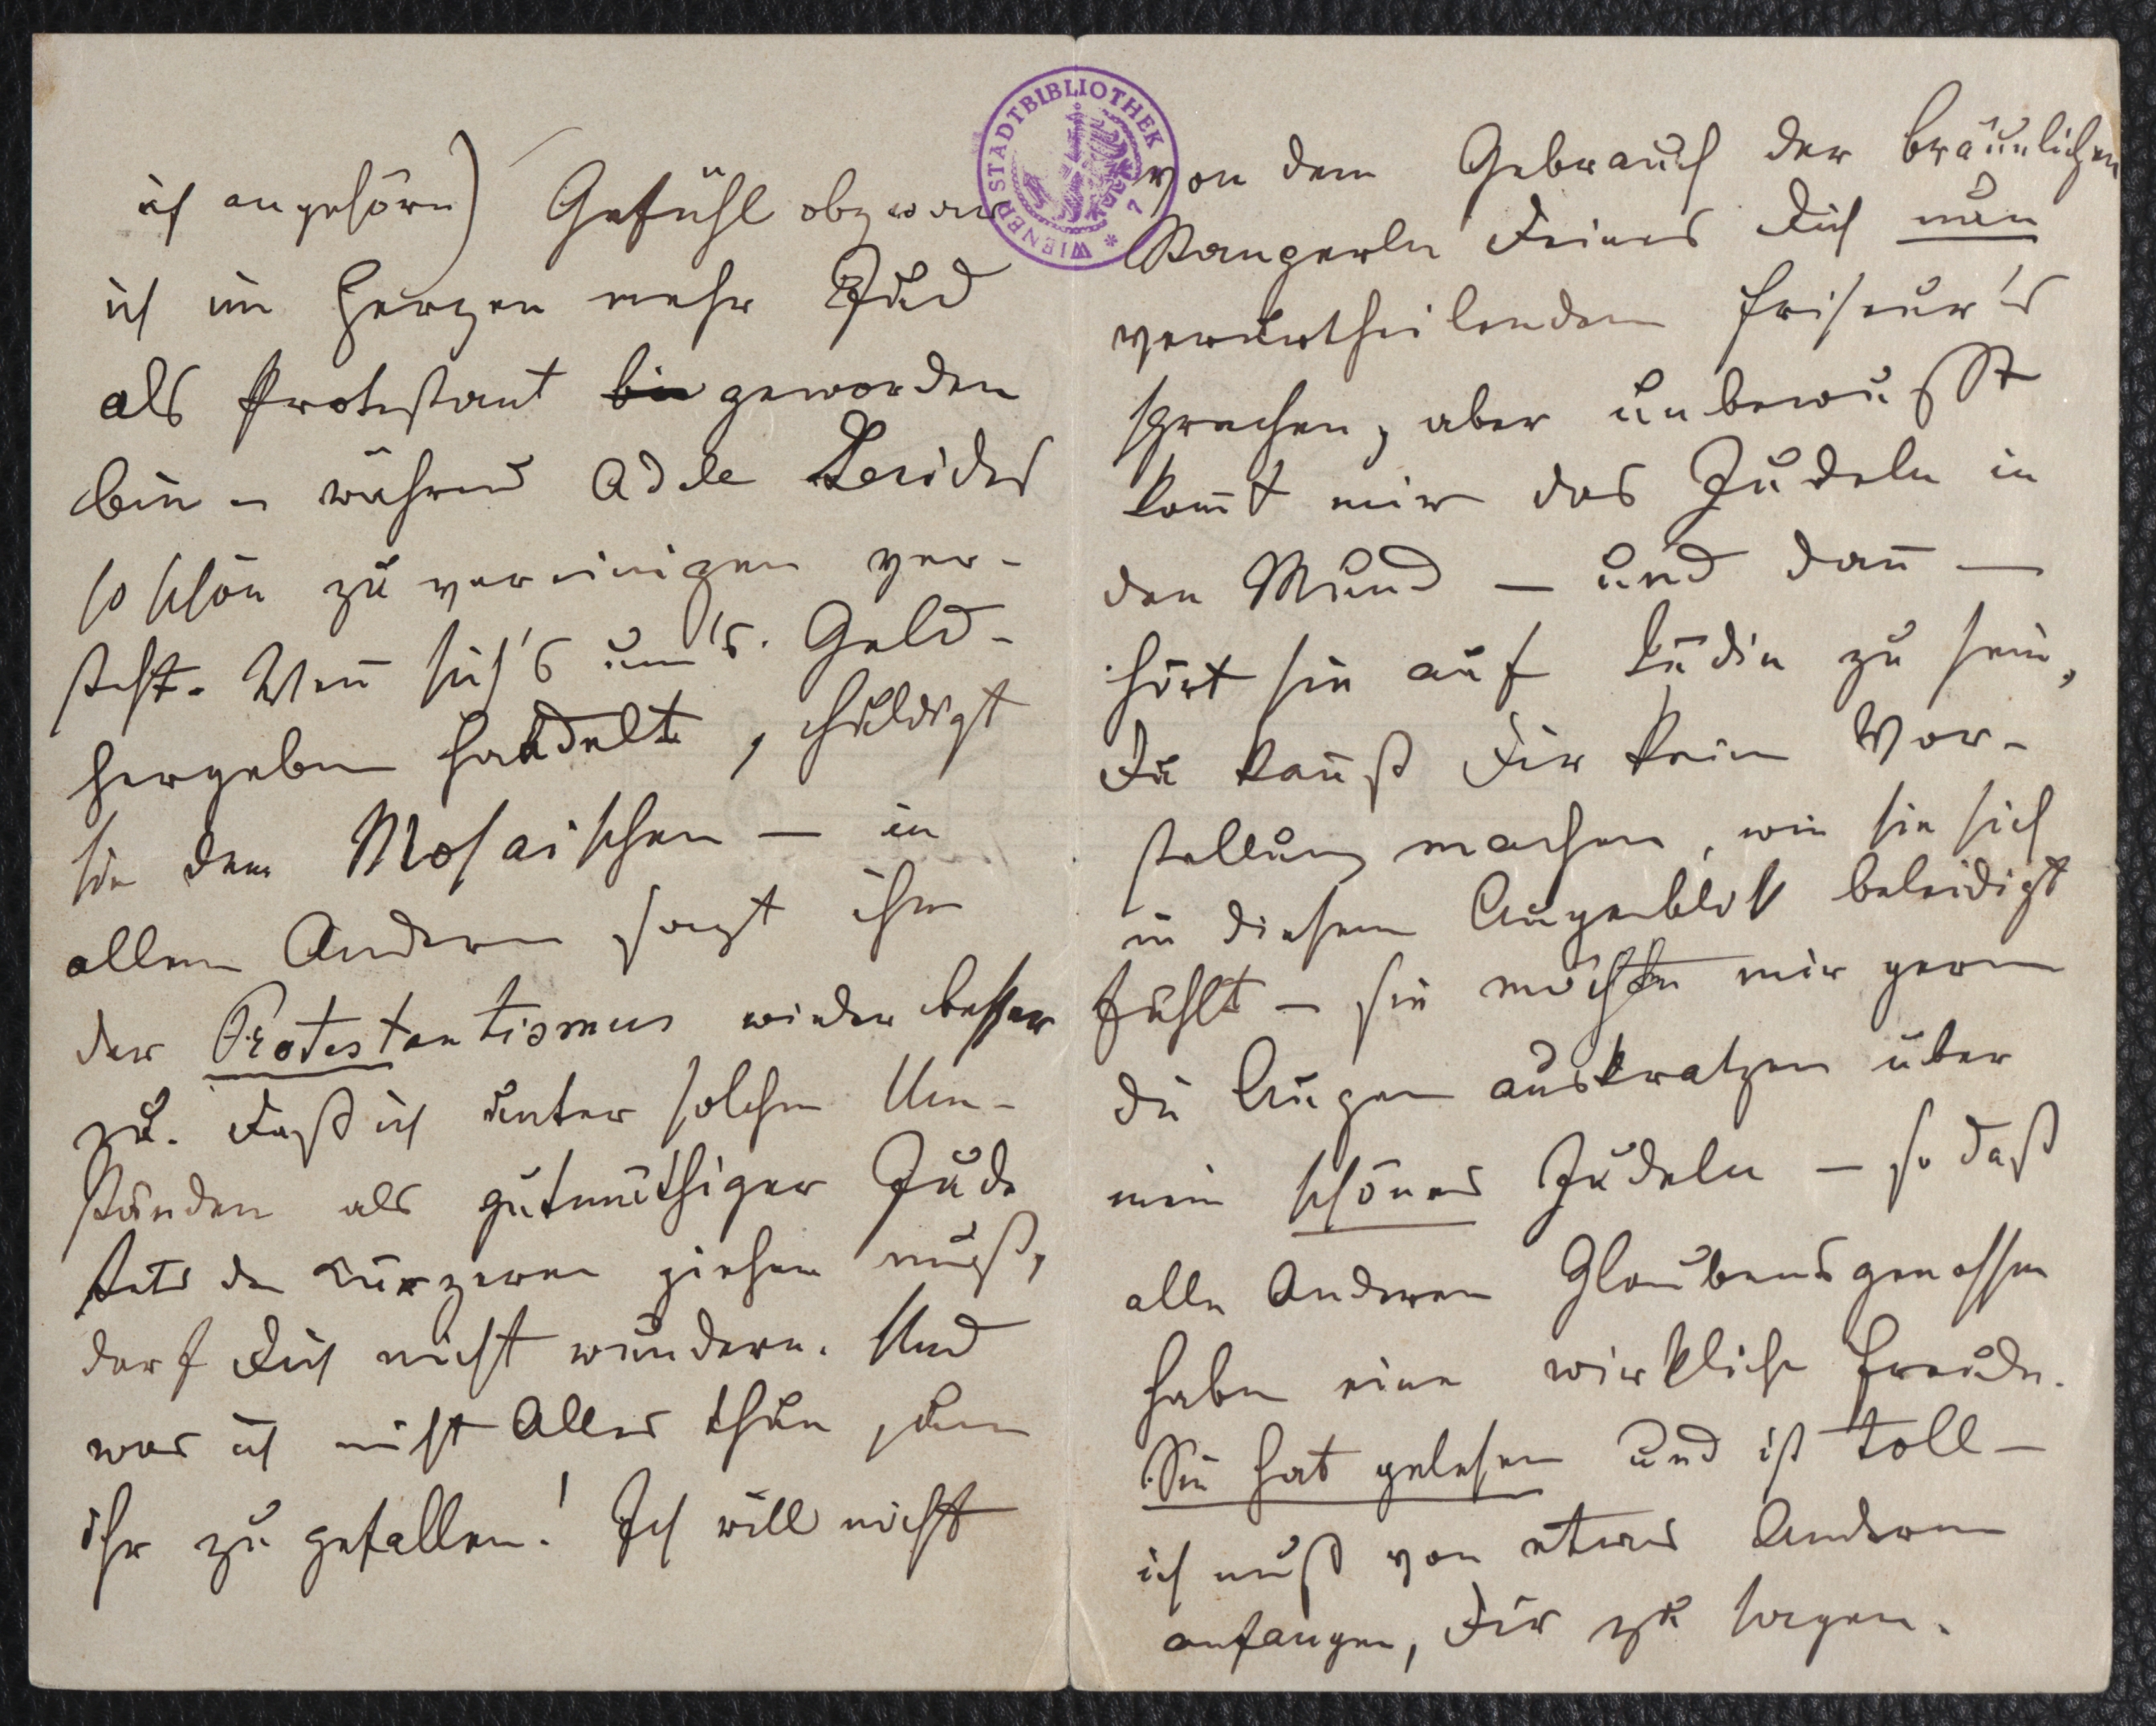 ich angehöre) Gefühl obzwar
ich im Herzen mehr Jud
als Protestant bin geworden
bin – während Adele Beides
so schön zu vereinigen ver-
steht. Wenn sich's um's Geld-
hergeben handelt, huldigt
sie dem Mosaischen — in
allem Andern sagt ihr
der Protestantismus wieder besser
zu. Daß ich unter solchen Um-
ständen als gutmüthiger Jude
stets den Kürzeren ziehen muß,
darf Dich nicht wundern. Und
was ich nicht Alles thue, um
ihr zu gefallen! Ich will nicht
WIENER STADTBIBLIOTHEK
von dem Gebrauch der bräunlichen
Stangerln Deines Dich nun
verurtheilenden Friseur's
sprechen, aber unbewußt
kom̄t mir das Judeln in
den Mund — und dan̄ —
hört sie auf Jüdin zu sein,
Du kan̄st Dir keine Vor-
stellung machen, wie sie sich
in diesem Augenblick beleidigt
fühlt – sie möchte mir gern
die Augen auskratzen über
mein schönes Judeln — so daß
alle Anderen Glaubensgenossen
haben eine wirkliche Freude.
Sie hat gelesen und ist toll —
ich muß von etwas Anderem
anfangen, Dir zu sagen.